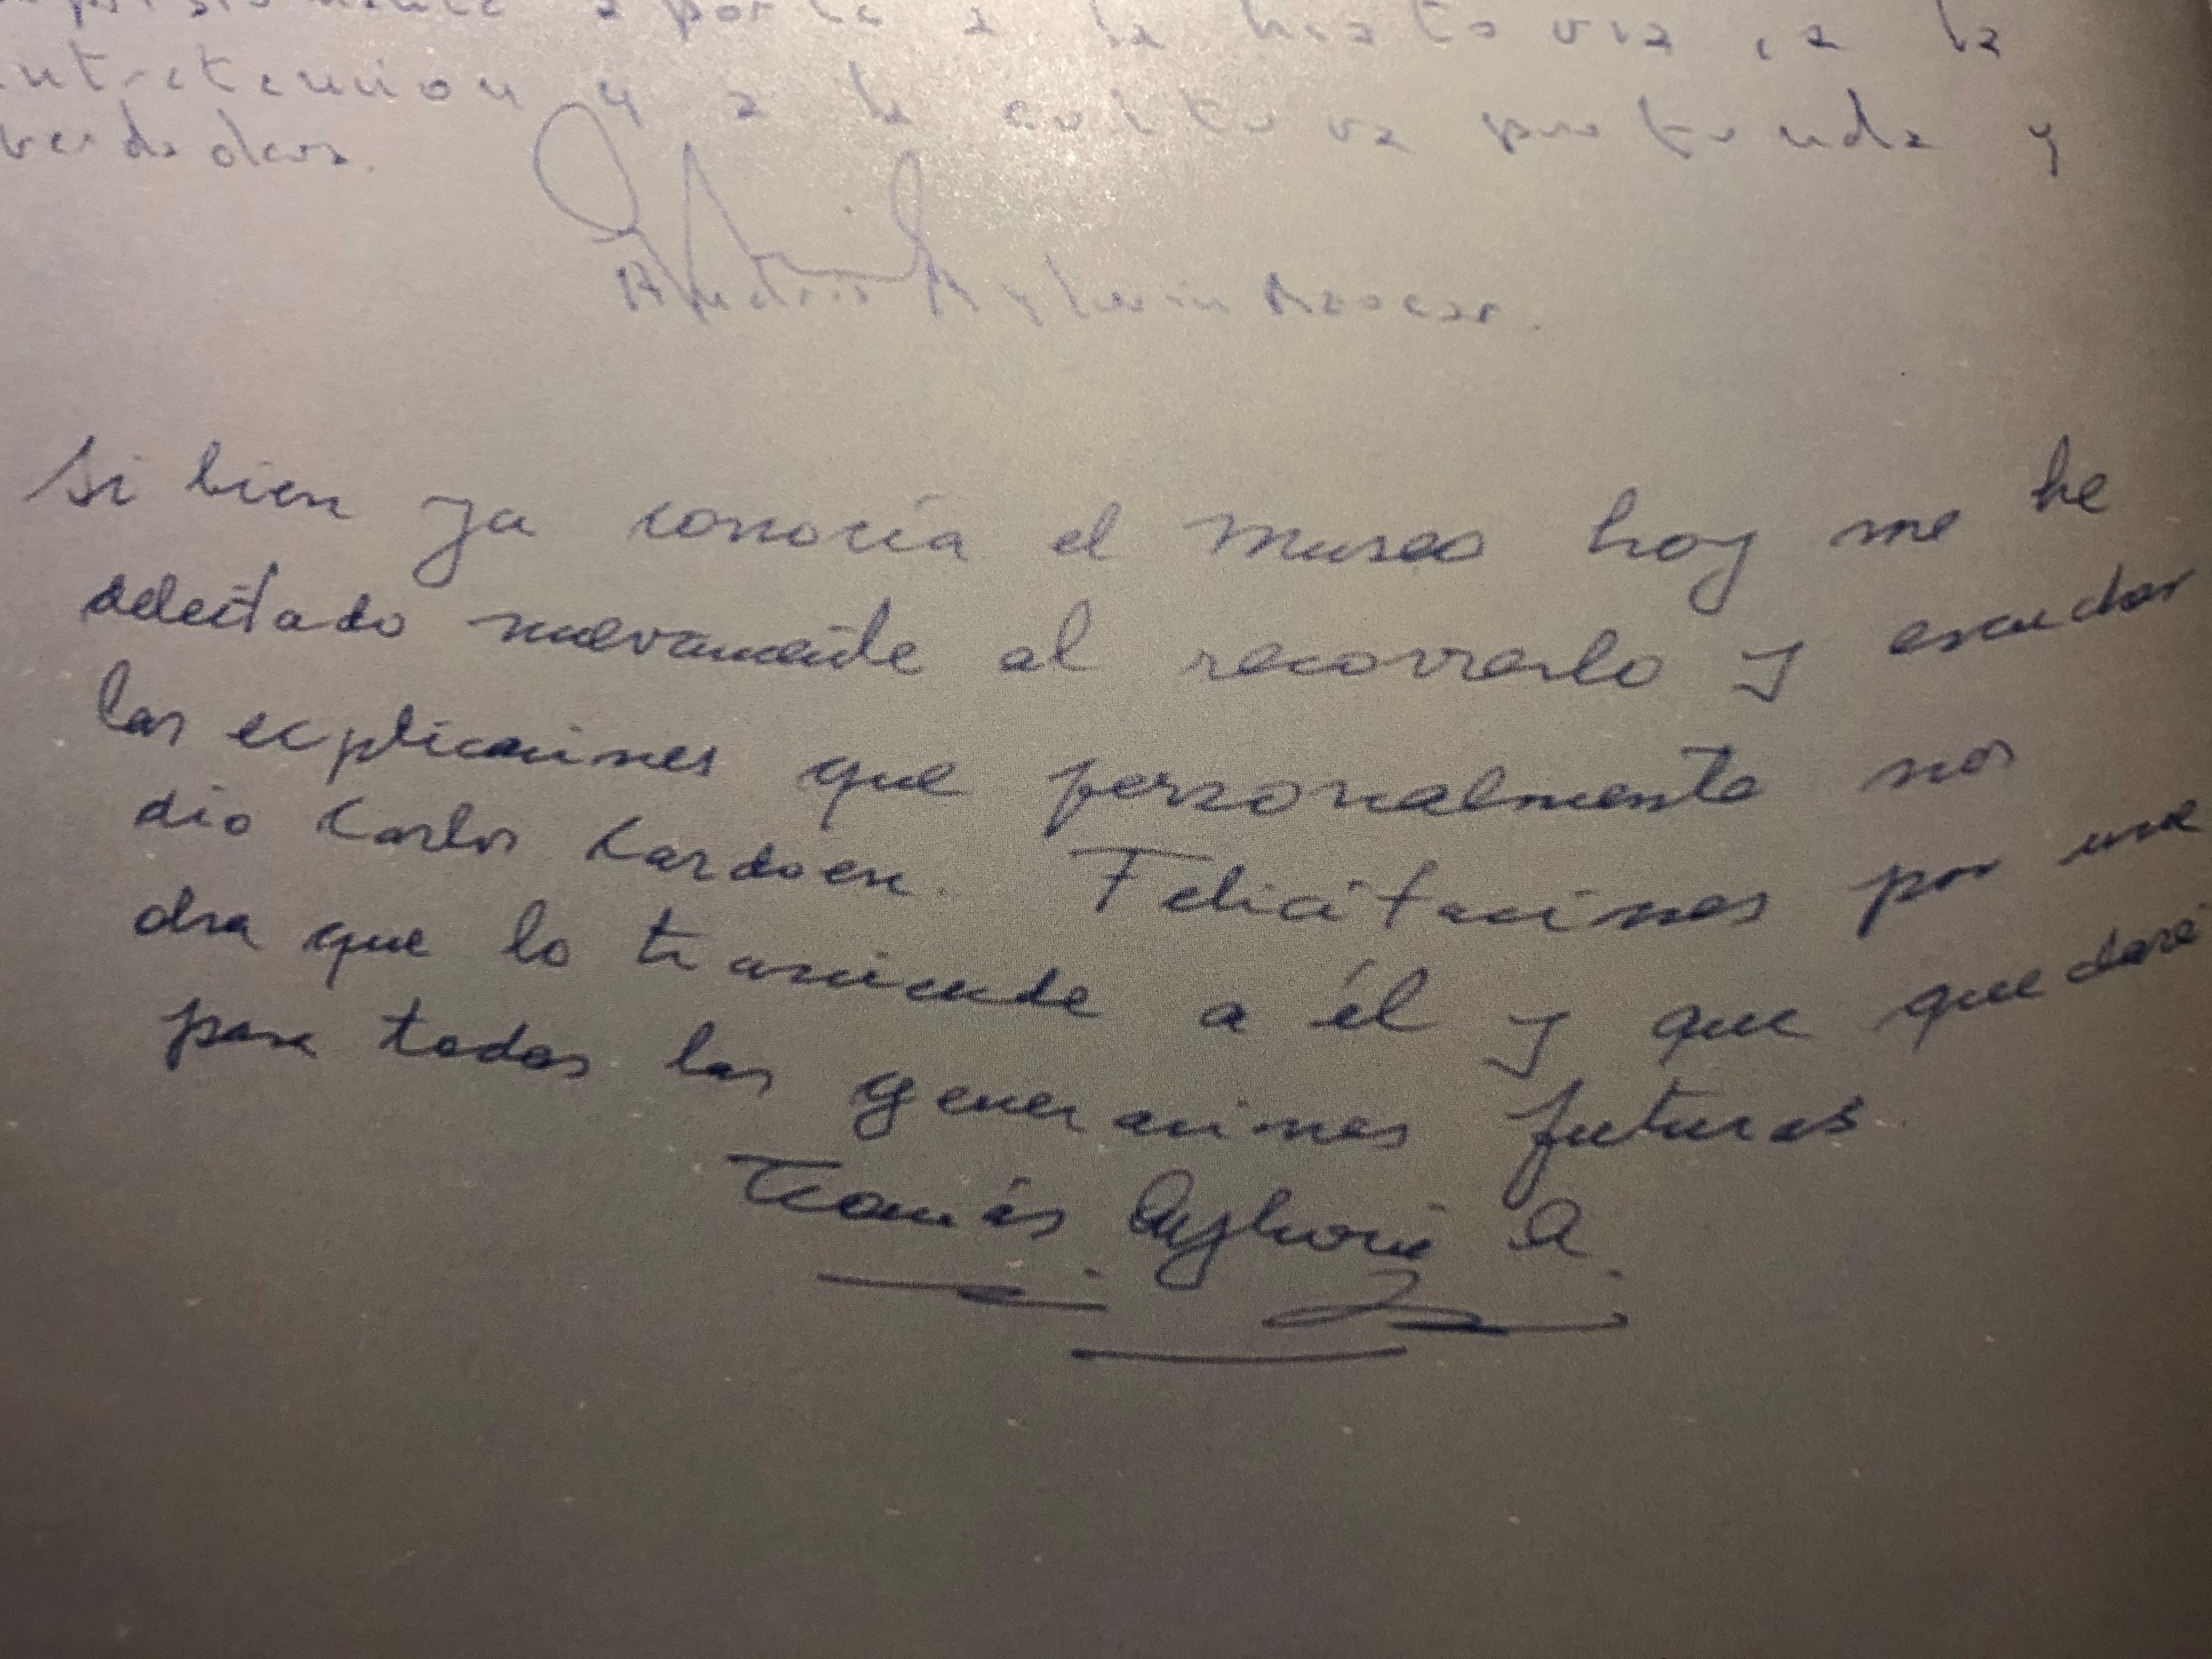 aporte a la historia, a la
entretención y a la cultura profunda y
verdadera.
Andrés Aylwin Azocar.
Si bien ya conocía el museo hoy me he
deleitado nuevamente al recorrerlo y escuchar
las explicaciones que personalmente nos
dio Carlos Cardoen. Felicitaciones por una
obra que lo trasciende a él y que quedará
para todas las generaciones futuras.
Tomás Aylwin A.